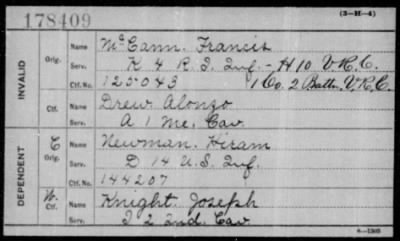 178409
(3-H-4)
INVALID
Orig. Name McCann, Francis
Serv. K 4 R.I. Inf. - H 10 V.R.C.
Ctf. No. 125043 1 Co. 2 Batt. V.R.C.
Ctf. Name Drew Alonzo
Serv. A 1 Me. Cav
DEPENDENT
C Orig. Name Newman, Hiram
Serv. D 14 U.S. Inf.
Ctf. No. 144207
W. Ctf. Name Knight, Joseph
Serv. I 2 Ind. Cav